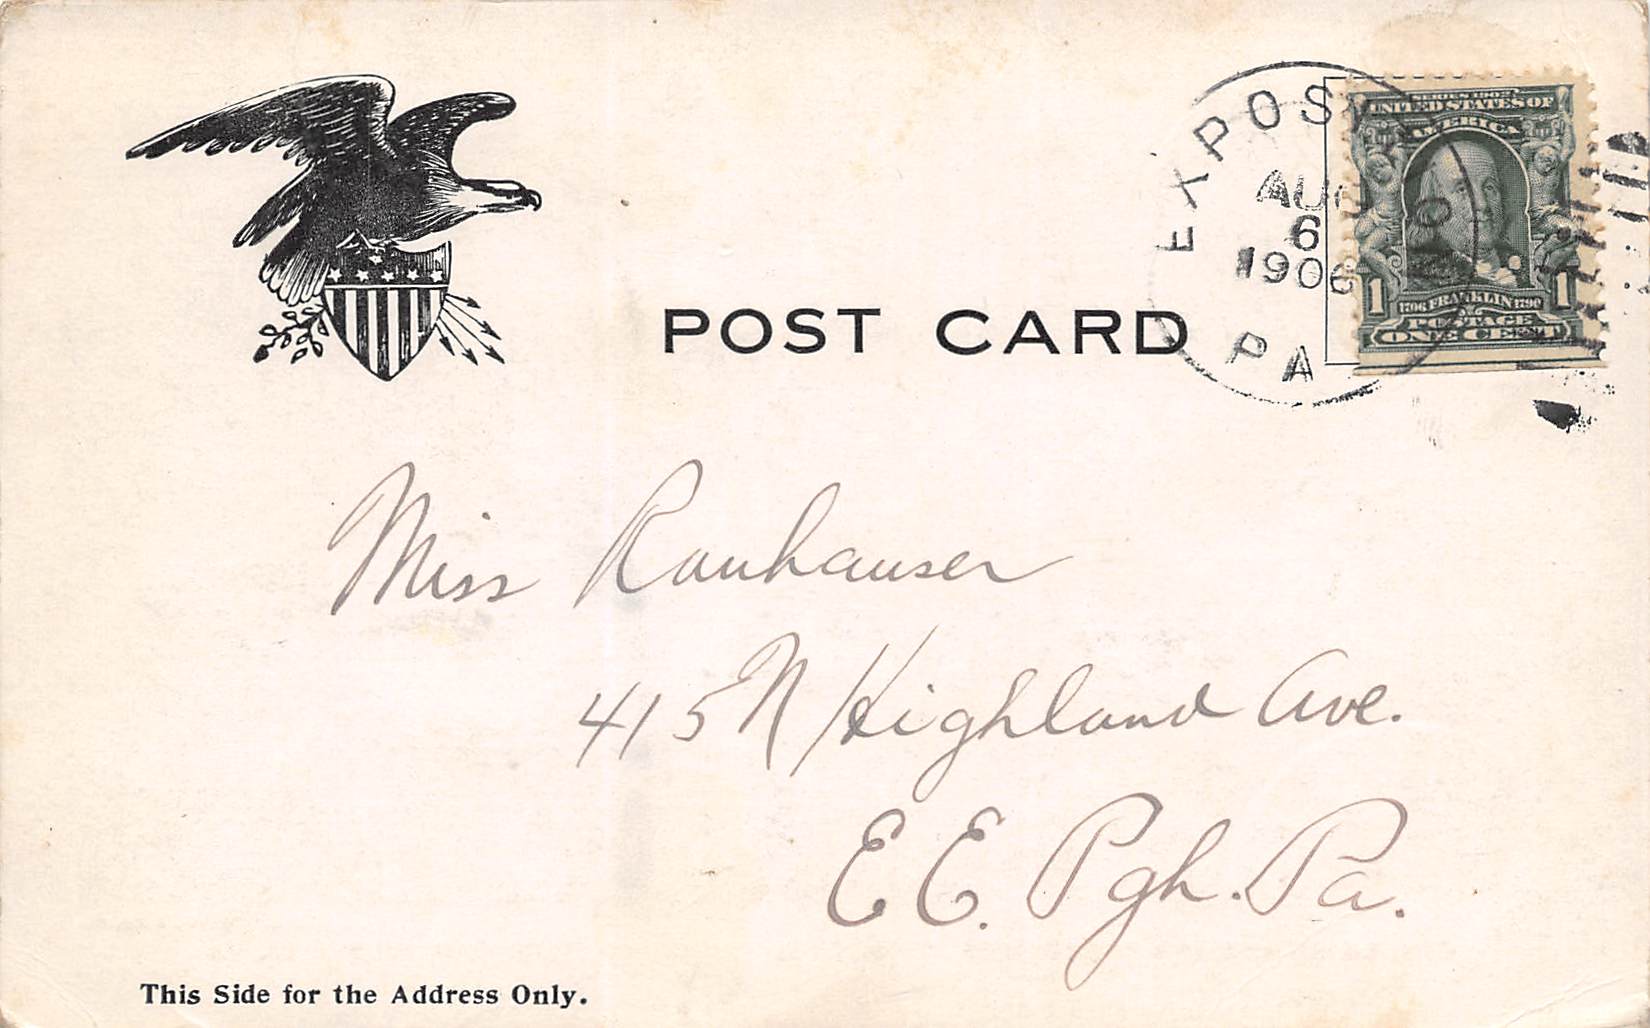 POST CARD
EXPOSITION
AUG
6
1906
PA
SERIES 1902
UNITED STATES OF
AMERICA
1 1706 FRANKLIN 1790 1
POSTAGE
ONE CENT
Miss Rauhauser
415 N Highland Ave.
E E. Pgh. Pa.
This Side for the Address Only.